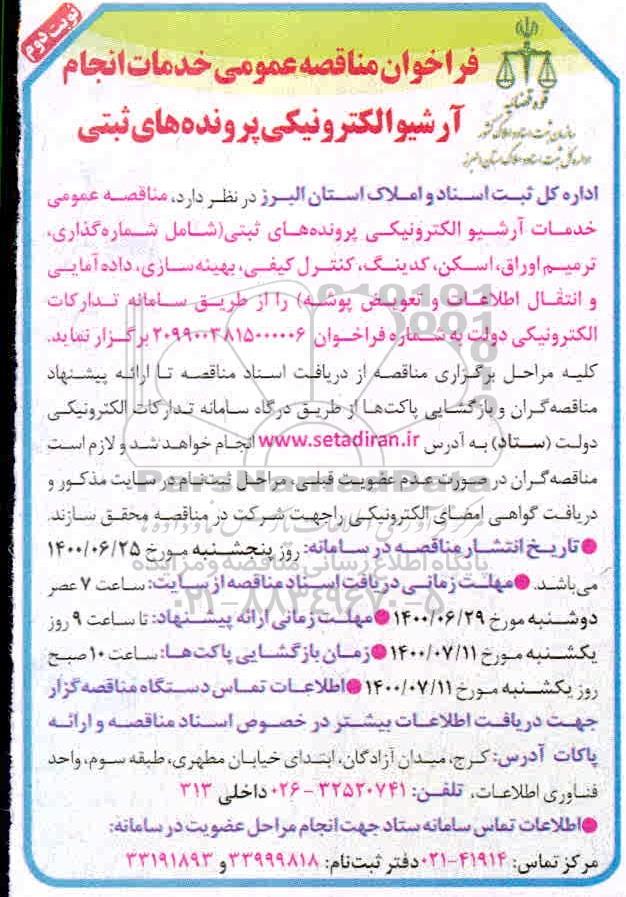 نوبت دوم
قوه قضائیه
سازمان ثبت اسناد و املاک کشور
اداره کل ثبت اسناد و املاک استان البرز
فراخوان مناقصه عمومی خدمات انجام
آرشیو الکترونیکی پرونده‌های ثبتی
اداره کل ثبت اسناد و املاک استان البرز در نظر دارد، مناقصه عمومی
خدمات آرشیو الکترونیکی پرونده‌های ثبتی(شامل شماره‌گذاری،
ترمیم اوراق، اسکن، کدینگ، کنترل کیفی، بهینه‌سازی، داده‌آمایی
و انتقال اطلاعات و تعویض پوشه) را از طریق سامانه تدارکات
الکترونیکی دولت به شماره فراخوان ۲۰۹۹۰۰۳۸۱۵۰۰۰۰۰۶ برگزار نماید.
کلیه مراحل برگزاری مناقصه از دریافت اسناد مناقصه تا ارائه پیشنهاد
مناقصه‌گران و بازگشایی پاکت‌ها از طریق درگاه سامانه تدارکات الکترونیکی
دولت (ستاد) به آدرس www.setadiran.ir انجام خواهد شد و لازم است
مناقصه‌گران در صورت عدم عضویت قبلی، مراحل ثبت‌نام در سایت مذکور و
دریافت گواهی امضای الکترونیکی را جهت شرکت در مناقصه محقق سازند.
●تاریخ انتشار مناقصه در سامانه: روز پنجشنبه مورخ ۱۴۰۰/۰۶/۲۵
می‌باشد. ●مهلت زمانی دریافت اسناد مناقصه از سایت: ساعت ۷ عصر
دوشنبه مورخ ۱۴۰۰/۰۶/۲۹ ●مهلت زمانی ارائه پیشنهاد: تا ساعت ۹ روز
یکشنبه مورخ ۱۴۰۰/۰۷/۱۱ ●زمان بازگشایی پاکت‌ها: ساعت ۱۰ صبح
روز یکشنبه مورخ ۱۴۰۰/۰۷/۱۱ ●اطلاعات تماس دستگاه مناقصه‌گزار
جهت دریافت اطلاعات بیشتر در خصوص اسناد مناقصه و ارائه
پاکات آدرس: کرج، میدان آزادگان، ابتدای خیابان مطهری، طبقه سوم، واحد
فناوری اطلاعات، تلفن: ۳۲۵۳۰۷۴۱ - ۰۲۶ داخلی ۳۱۳
●اطلاعات تماس سامانه ستاد جهت انجام مراحل عضویت در سامانه:
مرکز تماس: ۴۱۹۱۴-۰۲۱ دفتر ثبت‌نام: ۳۳۹۹۹۸۱۸ و ۳۳۱۹۱۸۹۳
ParsNamadData
پایگاه اطلاع رسانی مناقصه و مزایده
۰۲۱-۸۸۳۴۹۶۷۰-۵